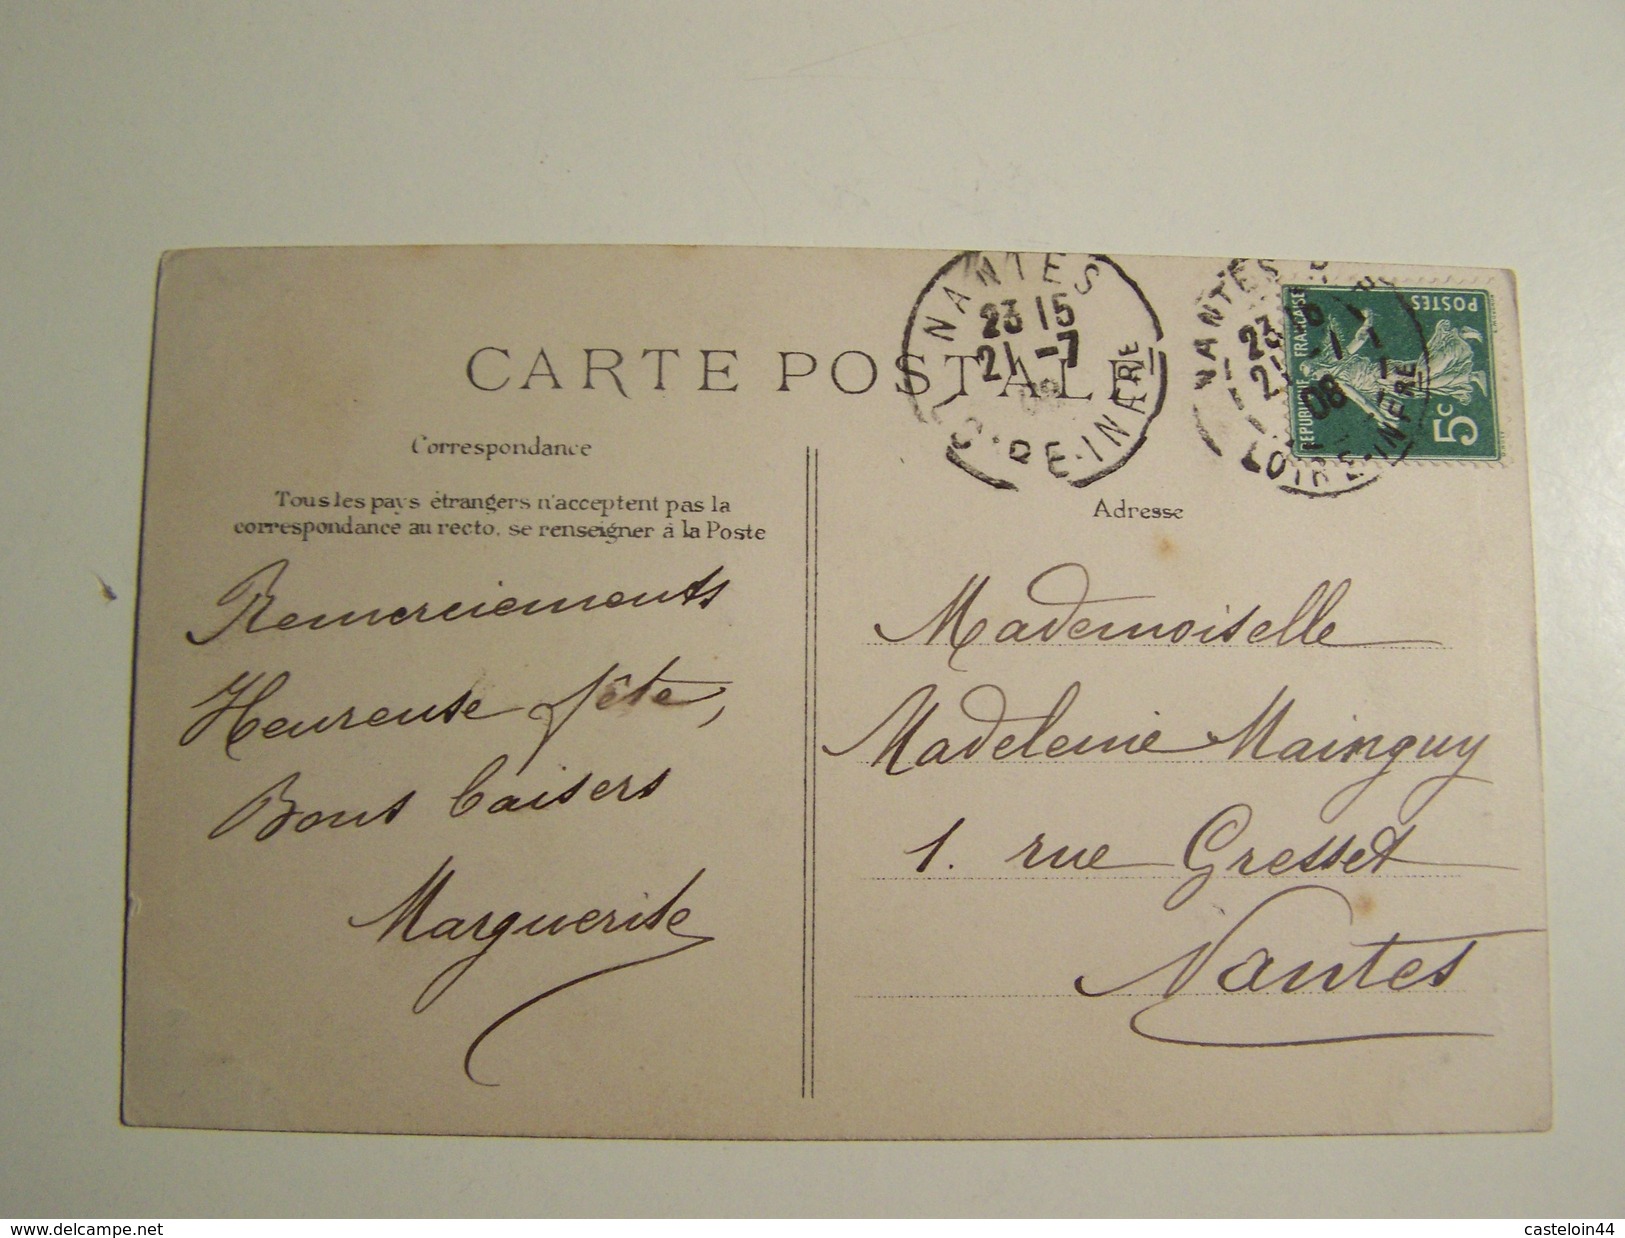 CARTE POSTALE
Correspondance
Tous les pays étrangers n'acceptent pas la
correspondance au recto, se renseigner à la Poste
Remerciements
Heureuse fête,
Bons baisers
Marguerite
NANTES
23 15
21 -7
08
LOIRE-INFRE
NANTES
08
LOIRE-INFRE
REPUBLIQUE FRANCAISE
POSTES
5c
Adresse
Mademoiselle
Madeleine Mainguy
1. rue Gresset
Nantes
www.delcampe.net
casteloin44